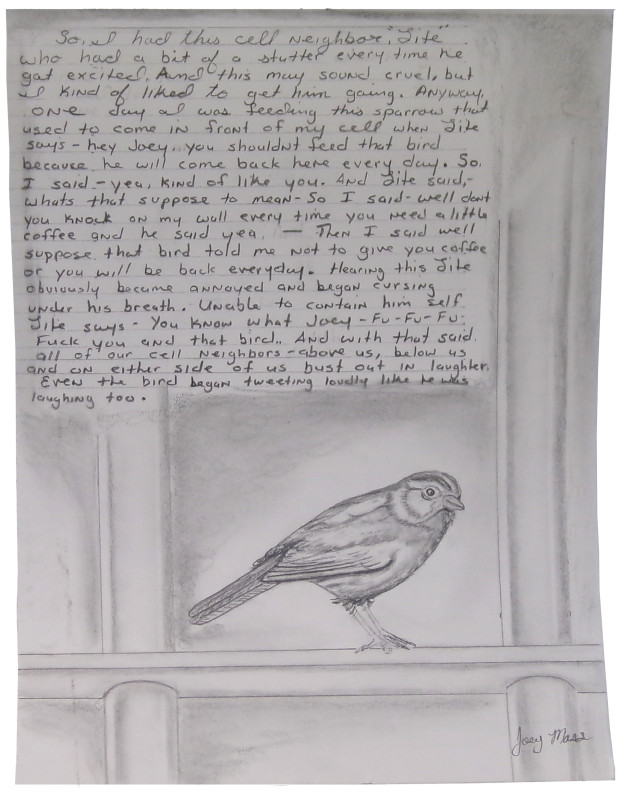 So, I had this cell neighbor, "Tite"
who had a bit of a stutter every time he
got excited. And this may sound cruel, but
I kind of liked to get him going. Anyway,
one day I was feeding this sparrow that
used to come in front of my cell when Tite
says - hey Joey, you shouldnt feed that bird
because he will come back here every day. So,
I said - yea, kind of like you. And Tite said, -
whats that suppose to mean - So I said - well dont
you knock on my wall every time you need a little
coffee and he said yea. — Then I said well
suppose that bird told me not to give you coffee
or you will be back everyday. Hearing this Tite
obviously became annoyed and began cursing
under his breath. Unable to contain him self
Tite says - You know what Joey - Fu - Fu - Fu -
Fuck you and that bird.. And with that said.
all of our cell neighbors - above us, below us
and on either side of us bust out in laughter.
Even the bird began tweeting loudly like he was
laughing too.
Joey Mass